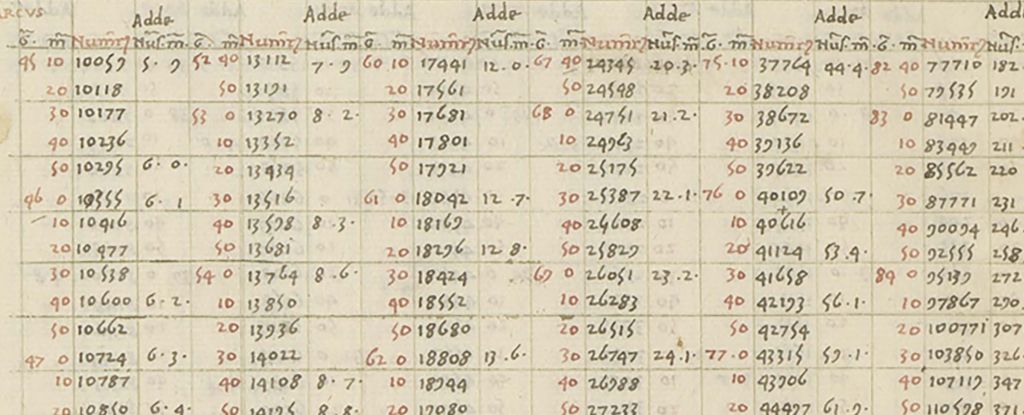 ARCVS Adde Adde Adde Adde Adde Add
G̃ m̃ Num̃rꝰ Nuſ.m̃. G̃ m̃ Num̃rꝰ Nuſ.m̃ G̃ m̃ Num̃rꝰ Nuſ.m̃ G̃ m̃ Num̃rꝰ Nuſ.m̃ G̃ m̃ Num̃rꝰ Nuſ.m̃. G̃ m̃ Num̃rꝰ Nuſ.
45 10 10059 5·9 52 40 13112 7·9 60 10 17441 12·0 67 40 24345 20·3· 75·10 37764 44·4· 82 40 77710 182
20 10118 50 13191 20 17561 50 24548 20 38208 50 79535 191
30 10177 53 0 13270 8·2· 30 17681 68 0 24751 21·2· 30 38672 83 0 81447 202
40 10236 10 13352 40 17801 10 24963 40 39136 10 83449 211
50 10295 6·0· 20 13434 50 17921 20 25175 50 39622 20 85562 220
46 0 10355 6·1 30 13516 61 0 18042 12·7· 30 25387 22·1· 76 0 40109 50·7· 30 87771 231
10 10416 40 13598 8·3· 10 18169 40 25608 10 40616 40 90094 246
20 10477 50 13681 20 18296 12·8· 50 25829 20 41124 53·4· 50 92555 258
30 10538 54 0 13764 8·6· 30 18424 69 0 26051 23·2· 30 41658 84 0 95139 272
40 10600 6·2· 10 13850 40 18552 10 26283 40 42193 56·1· 10 97867 290
50 10662 20 13936 50 18680 20 26515 50 42754 20 100771 307
47 0 10724 6·3· 30 14022 62 0 18808 13·6· 30 26747 24·1· 77·0 43315 59·1· 30 103850 326
10 10787 40 14108 8·7· 10 18944 40 26988 10 43906 40 107119 347
20 10850 6·4· 50 14195 8·8· 20 19080 50 27233 20 44497 61·9· 50 110598 371